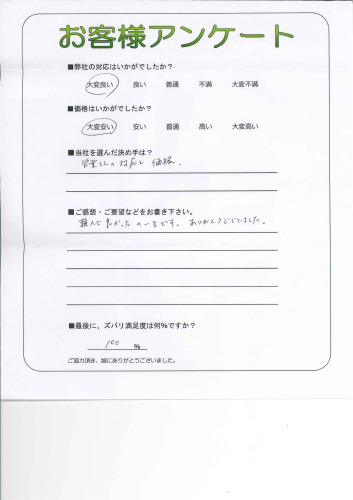 お客様アンケート
■弊社の対応はいかがでしたか?
大変良い 良い 普通 不満 大変不満
■価格はいかがでしたか?
大変安い 安い 普通 高い 大変高い
■当社を選んだ決め手は?
営業さんの対応と価格。
■ご感想・ご要望などをお書き下さい。
頼んで良かったの一言です。ありがとうございました。
■最後に、ズバリ満足度は何%ですか?
100 %
ご協力頂き、誠にありがとうございました。